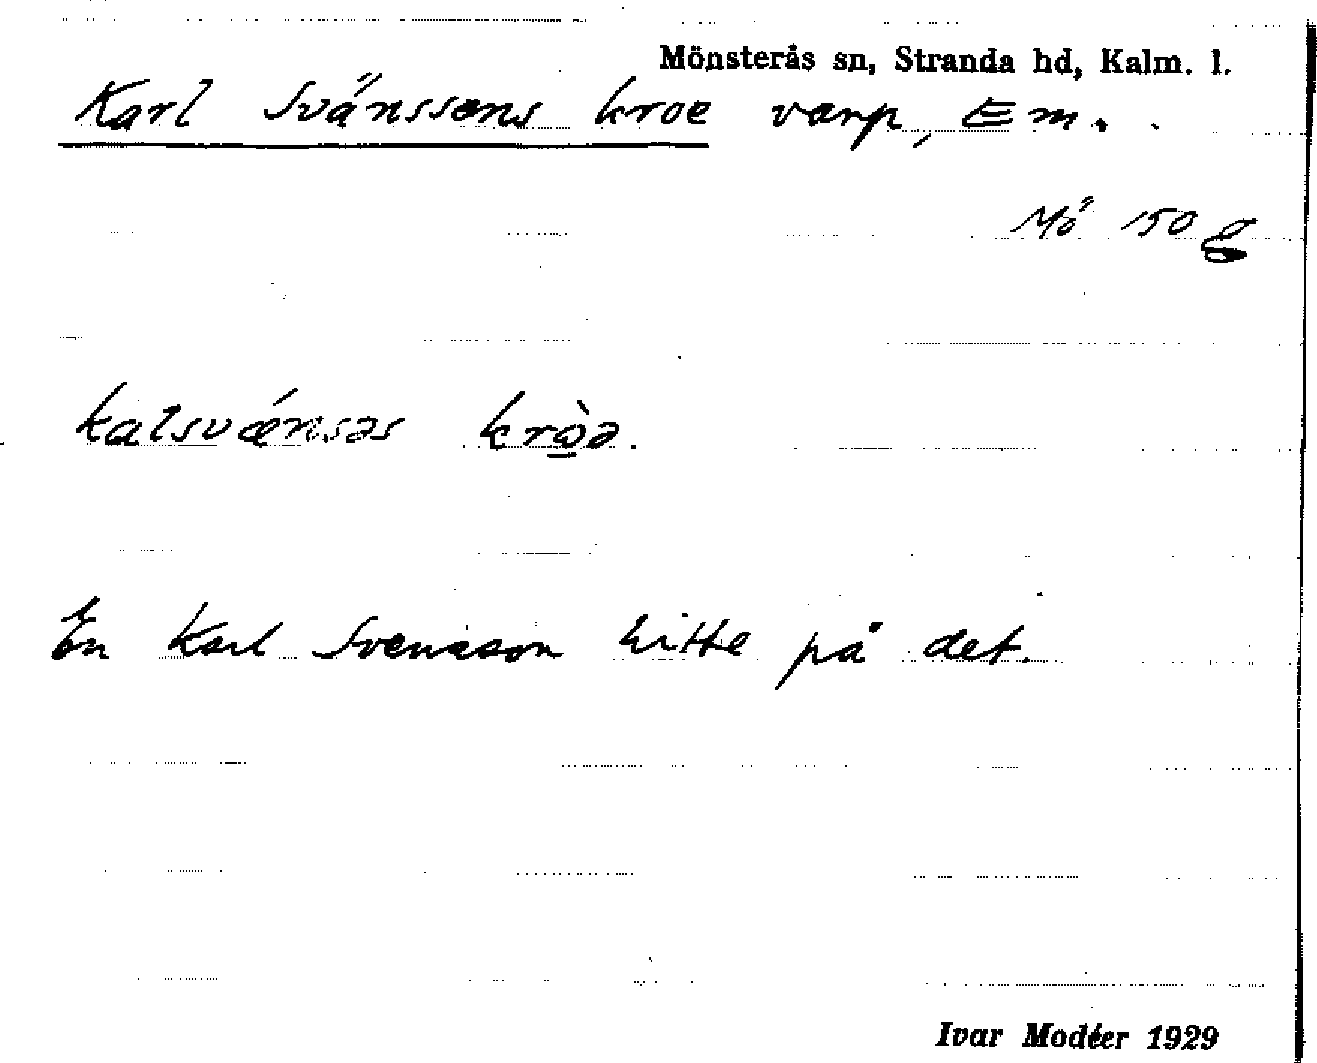 Mönsterås sn, Stranda hd, Kalm. l.
Karl Svänssons kroe varp, Em.
Mö 150
kalsvǽnsəs krò̱ə.
En Karl Svensson hitte på det.
Ivar Modéer 1929